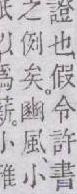 證也假令許書
之例矣。豳風、小
以爲薪。小雅